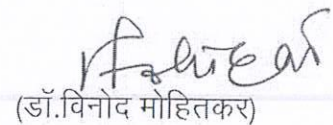 (डॉ.विनोद मोहितकर)